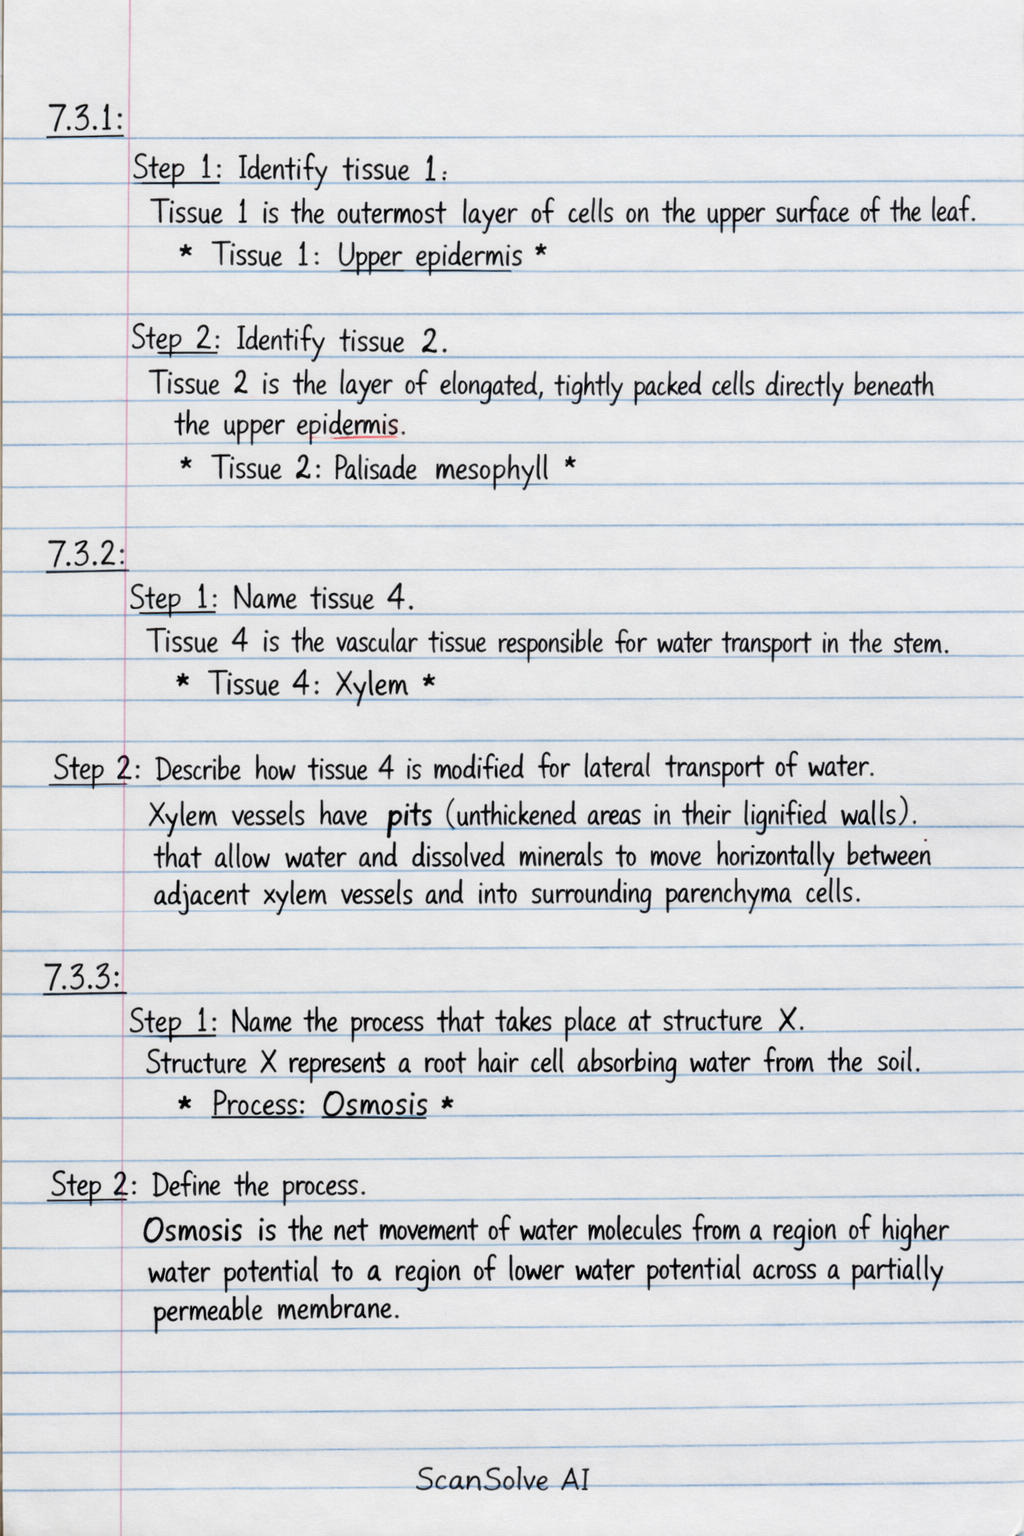 7.3.1:
Step 1: Identify tissue 1:
Tissue 1 is the outermost layer of cells on the upper surface of the leaf.
* Tissue 1: Upper epidermis *
Step 2: Identify tissue 2.
Tissue 2 is the layer of elongated, tightly packed cells directly beneath
the upper epidermis.
* Tissue 2: Palisade mesophyll *
7.3.2:
Step 1: Name tissue 4.
Tissue 4 is the vascular tissue responsible for water transport in the stem.
* Tissue 4: Xylem *
Step 2: Describe how tissue 4 is modified for lateral transport of water.
Xylem vessels have pits (unthickened areas in their lignified walls).
that allow water and dissolved minerals to move horizontally between
adjacent xylem vessels and into surrounding parenchyma cells.
7.3.3:
Step 1: Name the process that takes place at structure X.
Structure X represents a root hair cell absorbing water from the soil.
* Process: Osmosis *
Step 2: Define the process.
Osmosis is the net movement of water molecules from a region of higher
water potential to a region of lower water potential across a partially
permeable membrane.
ScanSolve AI